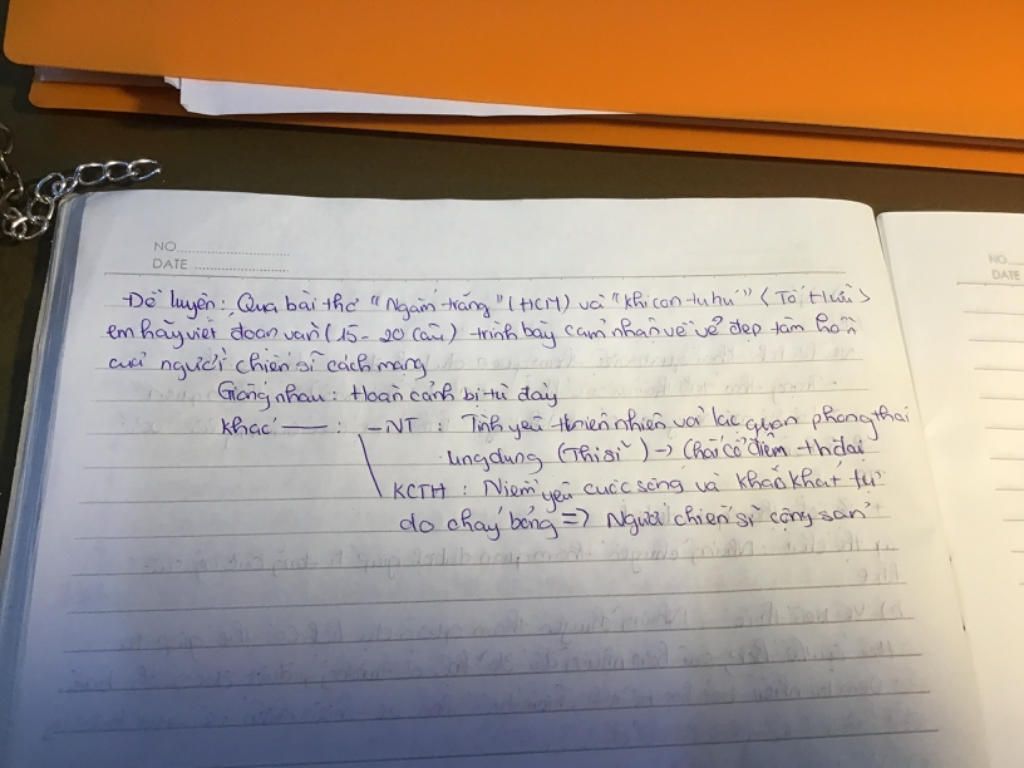 NO
DATE
Đề luyện: Qua bài thơ "Ngắm trăng" (HCM) và "Khi con tu hú" (Tố Hữu)
em hãy viết đoạn văn (15 - 20 câu) trình bày cảm nhận về vẻ đẹp tâm hồn
của người chiến sĩ cách mạng
Giống nhau: Hoàn cảnh bị tù đày
Khác —— : - NT : Tình yêu thiên nhiên và lạc quan phong thái
ung dung (Thi sĩ) -> Chất cổ điển
KCTH : Niềm yêu cuộc sống và khao khát tự
do cháy bỏng => Người chiến sĩ cộng sản
NO
DATE